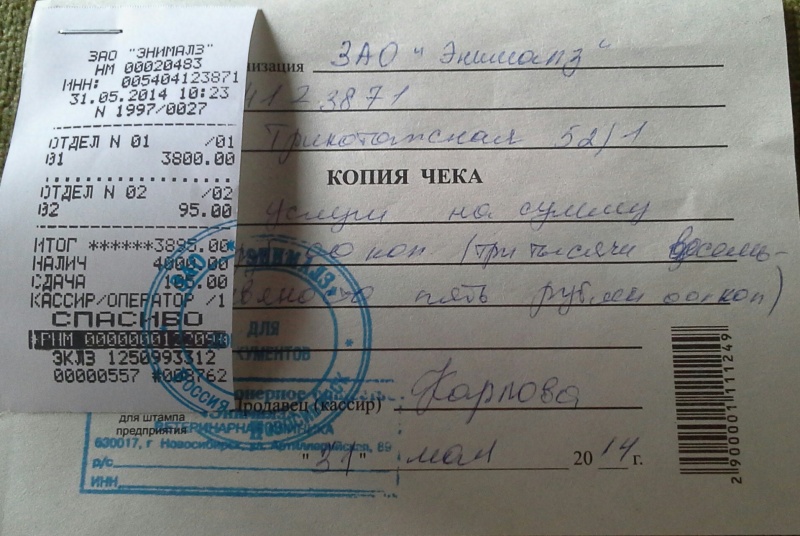 ЗАО "ЭНИМАЛЗ"
НМ 00020483
ИНН: 005404123871
31.05.2014 10:23
N 1997/0027
ОТДЕЛ N 01 /01
01 3800.00
ОТДЕЛ N 02 /02
02 95.00
ИТОГ ******3895.00
НАЛИЧ 4000.00
СДАЧА 105.00
КАССИР/ОПЕРАТОР /1
СПАСИБО
ЭКЛЗ 1250993312
00000557 #008762
низация ЗАО "Энималз"
4123871
Трикотажная 52/1
КОПИЯ ЧЕКА
услуги на сумму
коп (три тысячи восемь-
пять рублей 00 коп)
ЗАО "ЭНИМАЛЗ"
ДЛЯ
ДОКУМЕНТОВ
РОССИЯ
Продавец (кассир) Карпова
для штампа
предприятия
ВЕТЕРИНАРНАЯ
630017, г Новосибирск, ул. Артиллерийская, 89
р/с
ИНН
"31" мая 2014 г.
2 900001 111249